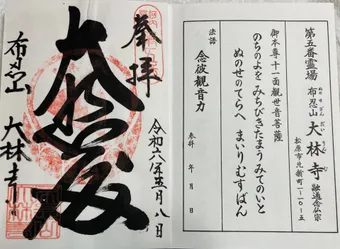 第五番霊場
布忍山 大林寺 融通念仏宗
松原市北新町一-一〇-五
御本尊十一面観世音菩薩
のちのよを みちびきたまう みてのいと
ぬのせのてらへ まいりむすばん
法語
念彼観音力
参拝 年 月 日
奉拝
令和六年五月八日
布忍山
大林寺